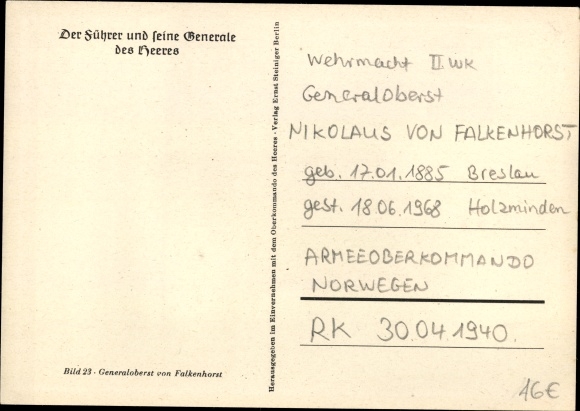 Der Führer und seine Generale
des Heeres
Bild 23 · Generaloberst von Falkenhorst
Herausgegeben im Einvernehmen mit dem Oberkommando des Heeres · Verlag Ernst Steiniger Berlin
Wehrmacht II.WK
GeneralOberst
NIKOLAUS VON FALKENHORST
geb. 17.01.1885 Breslau
gest. 18.06.1968 Holzminden
ARMEEOBERKOMMANDO
NORWEGEN
RK 30.04.1940.
16€